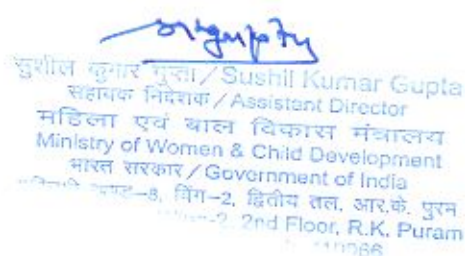 सुशील कुमार गुप्ता / Sushil Kumar Gupta
सहायक निदेशक / Assistant Director
महिला एवं बाल विकास मंत्रालय
Ministry of Women & Child Development
भारत सरकार / Government of India
-8, विंग-2, द्वितीय तल, आर.के. पुरम
-2, 2nd Floor, R.K. Puram